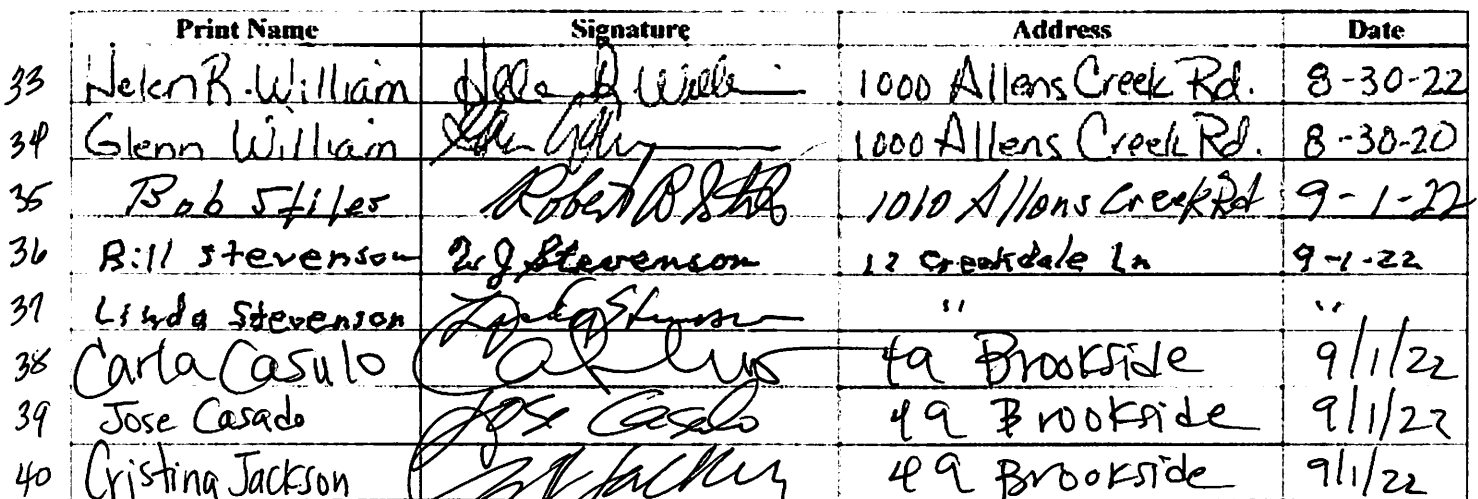 Print Name Signature Address Date
33 Helen R. William 1000 Allens Creek Rd. 8-30-22
34 Glenn William 1000 Allens Creek Rd. 8-30-20
35 Bob Stiles Robert B Stiles 1010 Allens Creek Rd 9-1-22
36 Bill Stevenson W J Stevenson 12 Creekdale Ln 9-1-22
37 Linda Stevenson Linda Stevenson " "
38 Carla Casulo 49 Brookside 9/1/22
39 Jose Casado Jose Casado 49 Brookside 9/1/22
40 Cristina Jackson Jackson 49 Brookside 9/1/22